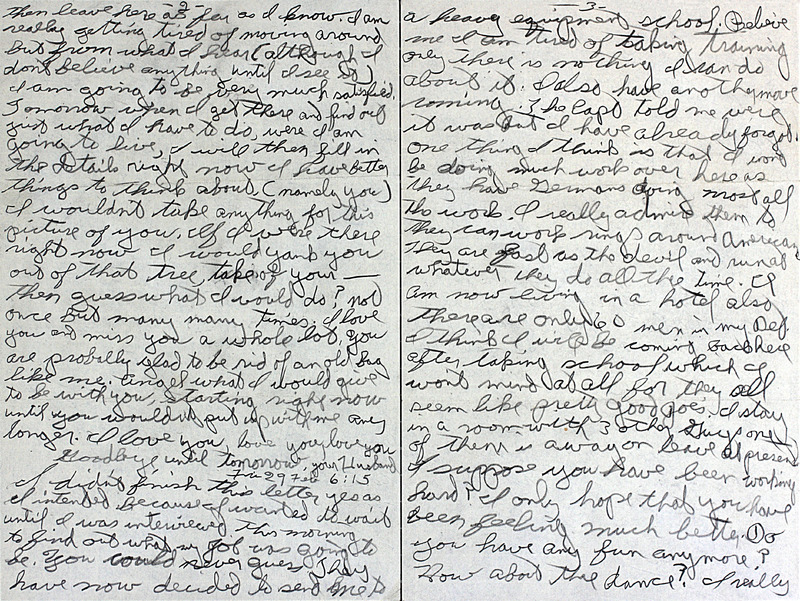 -2-
then leave here as far as I know. I am
really getting tired of moving around
but from what I hear (although I
dont believe anything until I see it)
I am going to be very much satisfied.
Tomorrow when I get there and find out
just what I have to do, were I am
going to live, I will then fill in
the details right now I have better
things to think about. (namely you)
I wouldn't take anything for this
picture of you. If I were there
right now I would yank you
out of that tree, take off your —
then guess what I would do? not
once but many many times. I love
you and miss you a whole lot, you
are probally glad to be rid of an old bug
like me. Angel what I would give
to be with you, starting right now
until you wouldn't put up with me any
longer. I love you, love you, love you
Goodbye until tomorrow, your Husband
Fri 29 Feb 6:15
I didn't finish this letter yes as
I intended because I wanted to wait
until I was interviewed this morning
to find out what my job was going to
be. You could never guess. They
have now decided to send me to
-3-
a heavy equipment school. Believe
me I am tired of taking training
only there is nothing I can do
about it. I also have another move
coming. The Capt told me were
it was but I have already forgot.
one thing I think is that I wont
be doing much work over here as
they have Germans doing most all
the work. I really admire them to
they can work rings around Americans
They are fast as the devil and
whatever they do all the time. I
am now living in a hotel also
there are only 60 men in my Det.
I think I will be coming back here
after taking school which I
wont mind at all for they all
seem like pretty good joes. I stay
in a room with 3 other Guys one
of them is away on leave at present
I suppose you have been working
hard? I only hope that you have
been feeling much better. Do
you have any fun anymore?
How about the dance? I really